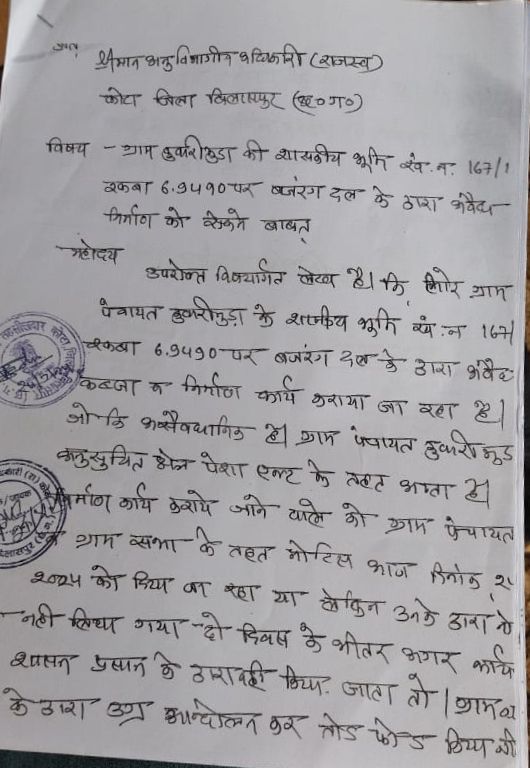 प्रति,
श्रीमान अनुविभागीय अधिकारी (राजस्व)
कोटा जिला बिलासपुर (छ०ग०)
विषय - ग्राम कुवारीमुड़ा की शासकीय भूमि खं. न. 167/1
रकबा 6.9490 पर बजरंग दल के द्वारा अवैध
निर्माण को रोकने बाबत्
महोदय
उपरोक्त विषयांर्गत लेख है। कि, ग्राम
पंचायत कुवारीमुड़ा के शासकीय भूमि खं. न 167/
रकबा 6.9490 पर बजरंग दल के द्वारा अवैध
कब्जा व निर्माण कार्य कराया जा रहा है।
जो कि असंवैधानिक है। ग्राम पंचायत कुवारीमुड़
अनुसुचित क्षेत्र पेशा एक्ट के तहत आता है।
निर्माण कार्य कराये जाने वाले को ग्राम पंचायत
ग्राम सभा के तहत नोटिस आज दिनांक
को दिया जा रहा था लेकिन उनके द्वारा नो
नही लिया गया - दो दिवस के भीतर अगर कार्य
शासन के द्वारा नही किया जाता तो ग्राम
के द्वारा उग्र आन्दोलन कर तोड़ फोड़ किया